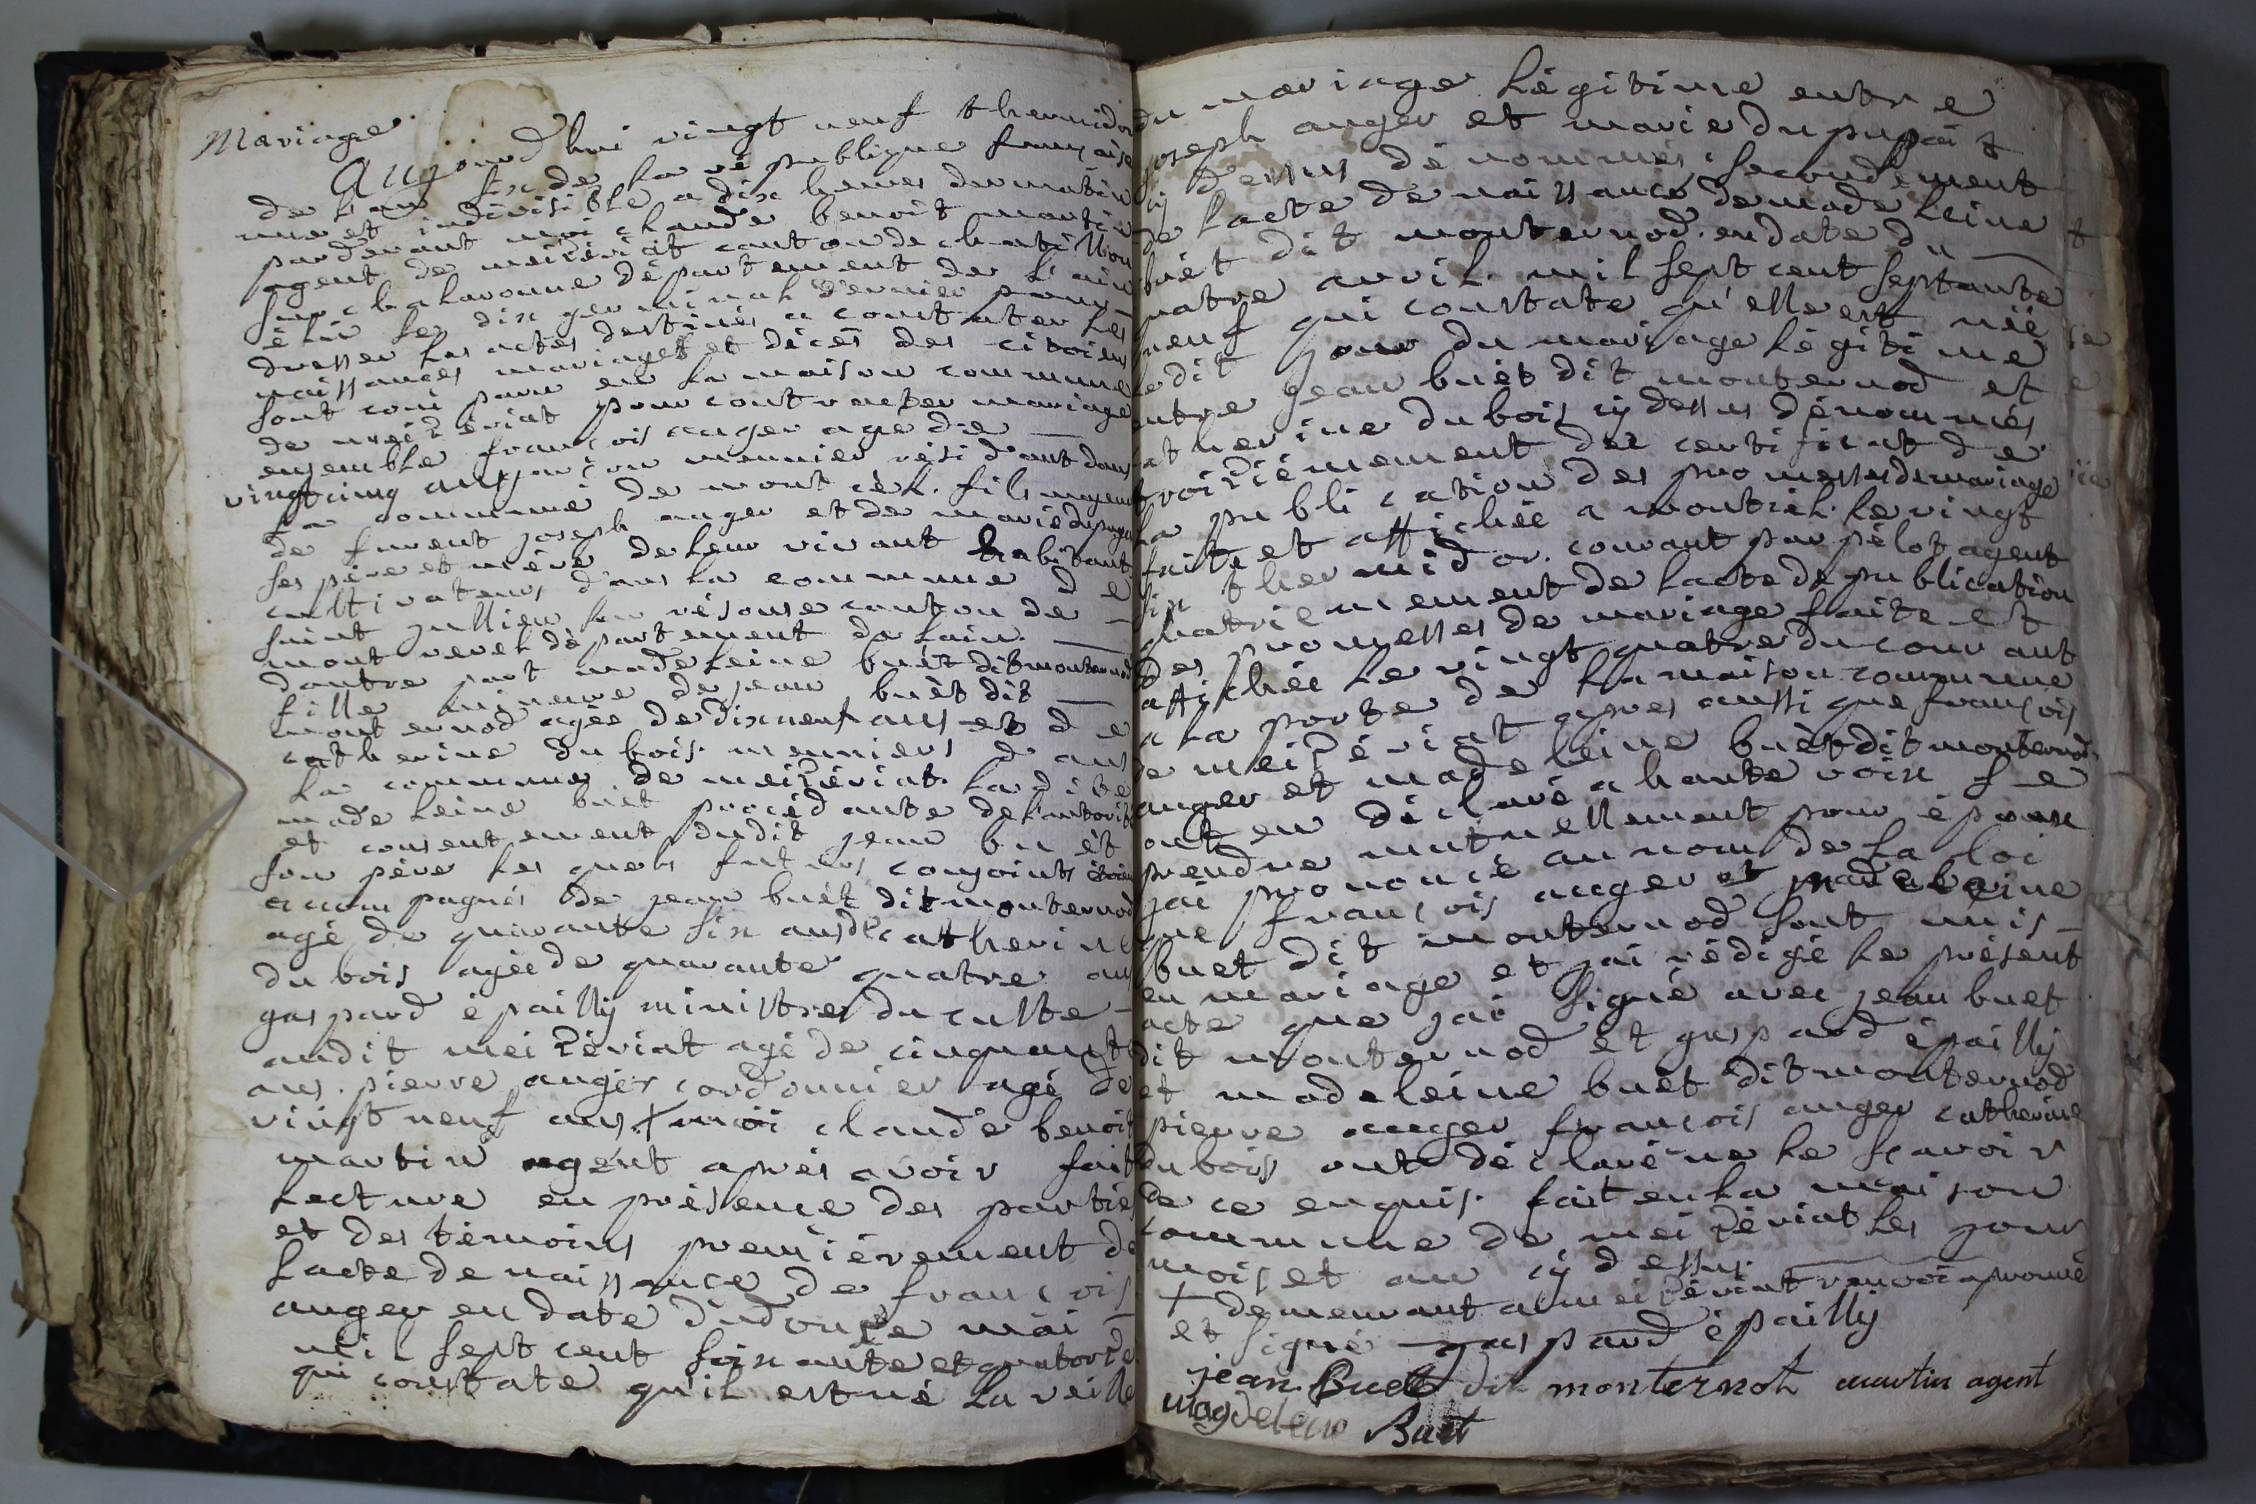 Mariage
Aujourd'hui vingt neuf thermidor
de l'an six de la république française
une et indivisible a dix heures du matin
pardevant moi claude benoit martin
agent de meizériat canton de chatillon
sur chalaronne département de l'ain
élu le dix germinal dernier pour
dresser les actes destinés a constater les
naissances mariages et décès des citoiens
sont comparu en la maison commune
de meizériat pour contracter mariage
ensemble françois auger agé de
vingtcinq ans garçon meunier résidant dans
la commune de mont cèl. fils majeur
de furent joseph auger et de marie dupupai
ses père et mère de leur vivant habitants
cultivateurs dans la commune de
saint jullien sur résouse canton de
mont revel département de lain.
dautre part madeleine buèt dit monternod
fille mineure de jean buèt dit
monternod agée de dix neuf ans et de
catherine dubois meuniers dans
la commune de meizériat. ladite
madeleine buet procédante de l'autorité
et consentement dudit jean buèt
son père les quels futurs conjoints étoient
accompagnés de jean buèt dit monternod
agé de quarante six ans de catherine
dubois agée de quarante quatre ans
gaspard épailly ministre du culte
audit meizériat agé de cinquante
ans. pierre auger cordonnier agé de
vingt neuf ans + moi claude benoit
martin agent après avoir fait
lecture en présence des parties
et des témoins premièrement de
lacte de naissance de françois
auger en date du douze mai
mil sept cent soixante et quatorze
qui constate qu'il est né la veille
du mariage légitime entre
joseph auger et marie dupupai
cy dessus dénommés. secondement
de lacte de naissance de madeleine
buèt dit monternod. en date du
quatre avril mil sept cent septante
neuf qui constate qu'elle est née
ledit jour du mariage légitime
entre jean buèt dit monternod et
catherine dubois cy dessus dénommés
troiziémement des certificat de
la publication des promesses de mariage
faite et affichée a montcel le vingt
six thermidor. courant par pélot agent
quatriemement de lacte de publication
des promesses de mariage faite et
affichée le vingt quatre du courant
a la porte de la maison commune
de meizériat apres aussi que françois
auger et madeleine buèt dit monternod
ont eu déclaré a haute voix se
prendre mutuellement pour époux
jai prononcé au nom de la loi
que françois auger et madeleine
buet dit monternod sont unis
en mariage et jai rédigé le présent
acte que jai signé avec jean buet
dit monternod et gaspard épailly
et madeleine buèt dit monternod
pierre auger françois auger catherine
dubois ont déclaré ne le sçavoir
de ce enquis. fait en la maison
commune de meizériat les jour
mois et an cy dessus.
+ demeurant a meizériat renvoi aprouvé
et signé gaspard épailly
jean Buet dit monternot martin agent
magdeleine Buet